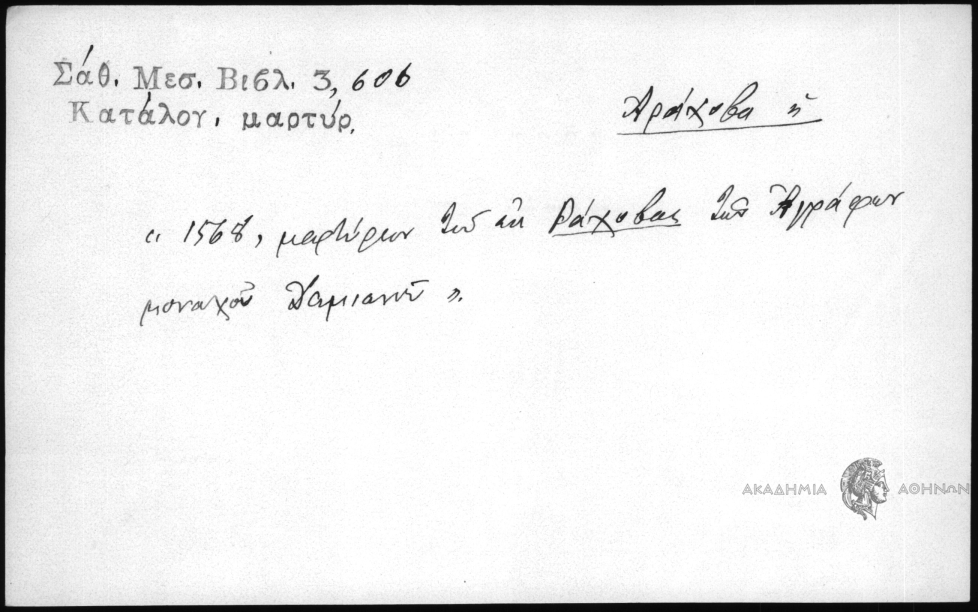 Σάθ. Μεσ. Βιβλ. 3, 606
Κατάλογ. μαρτύρ.
Ἀράχοβα ἡ
« 1568, μαρτύριον τοῦ ἐκ Ῥάχοβας τῶν Ἀγράφων
μοναχοῦ Δαμιανοῦ ».
ΑΚΑΔΗΜΙΑ ΑΘΗΝΩΝ